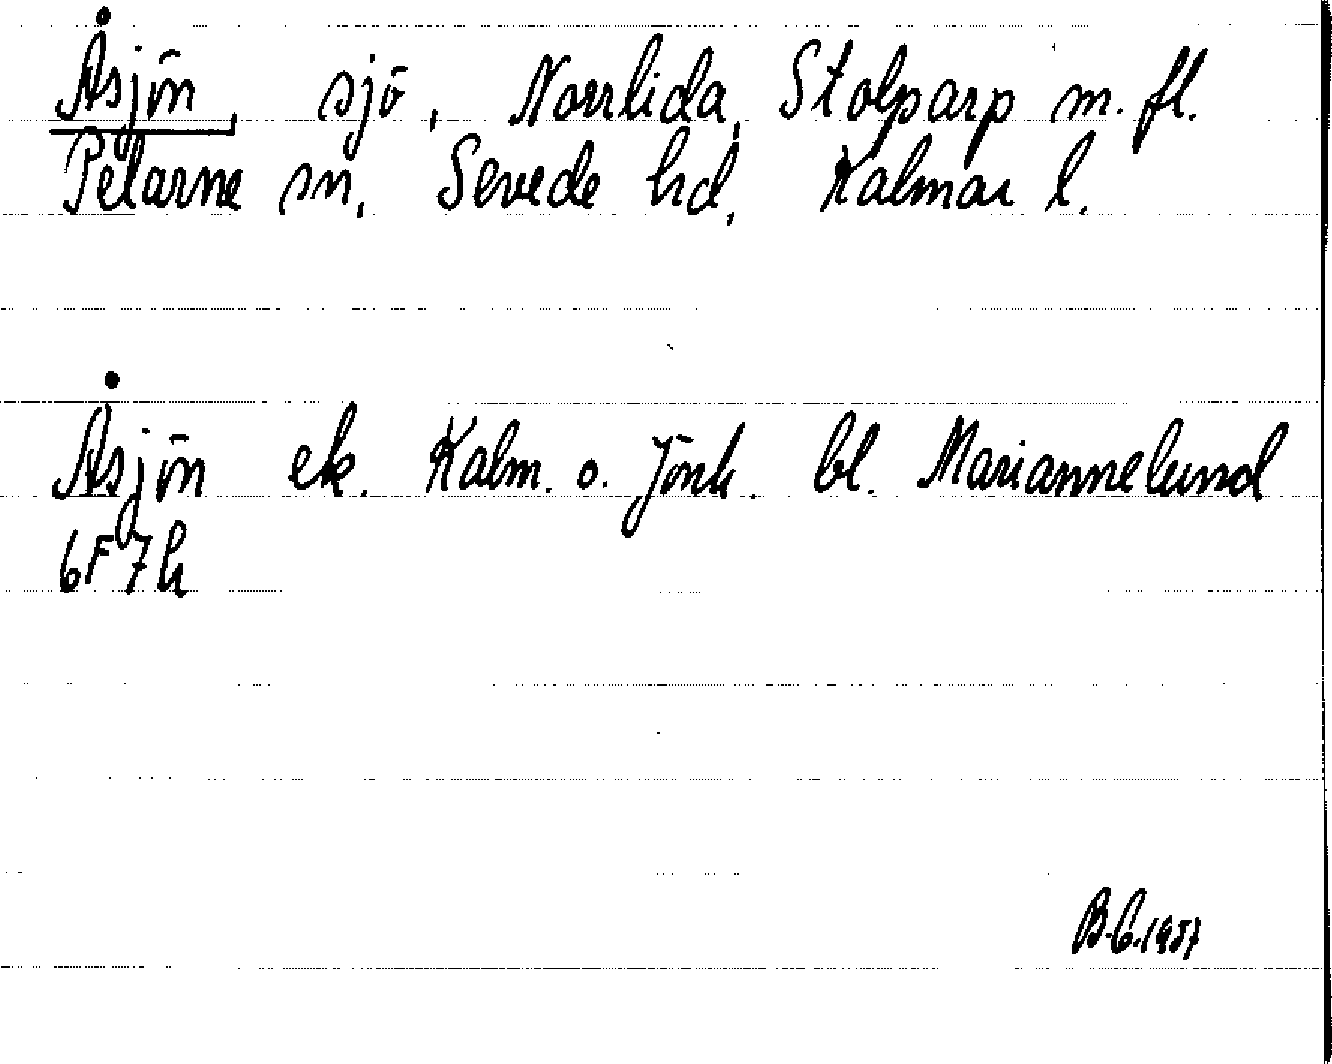 Åsjön, sjö, Norrlida, Stolparp m. fl.
Pelarne sn, Sevede hd, Kalmar l.
Åsjön ek. Kalm. o. Jönk. bl. Mariannelund
6F7h
B.C.1957